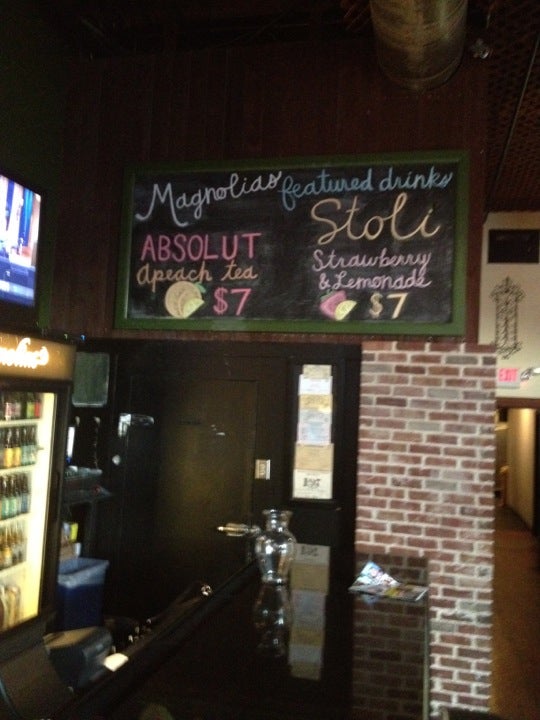 Magnolias featured drinks
ABSOLUT
Apeach tea
$7
Stoli
Strawberry
& Lemonade
$7
EXIT